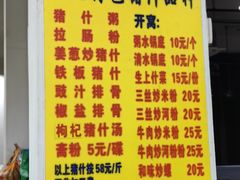 猪什粥
拉肠粉
姜葱炒猪什
铁板猪什
豉汁排骨
椒盐排骨
枸杞猪什汤
斋粉 5元/碟
以上猪什按58元/斤
开窝:
粥水锅底 10元/个
清水锅底 10元/个
生上什菜 15元/份
三丝炒米粉 20元
三丝炒河粉 20元
牛肉炒米粉 25元
牛肉炒河粉 25元
和味炒螺 20元